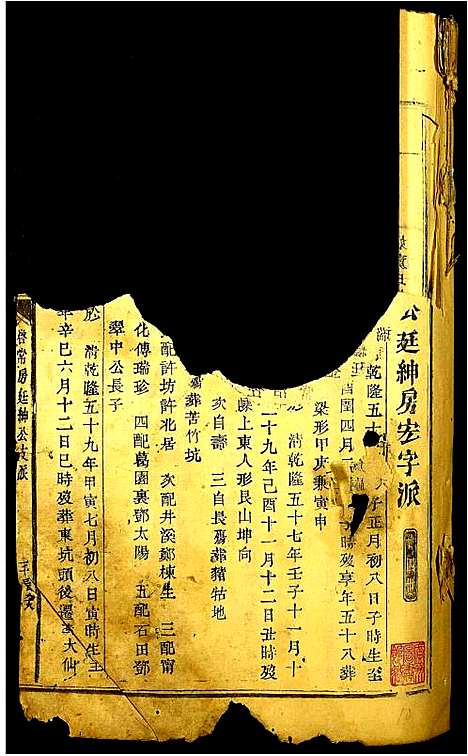 公廷紳房宏字派
乾隆五十 年 子正月初八日子時生至
酉四月 時歿享年五十八葬
梁形甲庚兼寅申
清乾隆五十七年壬子十一月十
二十九年己酉十一月十二日丑時歿
上東人形艮山坤向
次自壽 三自長殤葬豬牯地
殤葬苦竹坑
配許坊許兆居 次配井溪鄭棟生 三配甯
化傅瑞珍 四配葛園裏鄧太陽 五配石田鄧
翠中公長子
清乾隆五十九年甲寅七月初八日寅時生至
年辛巳六月十二日巳時歿葬東坑頭後遷葬大仙
啓常房廷紳公支派